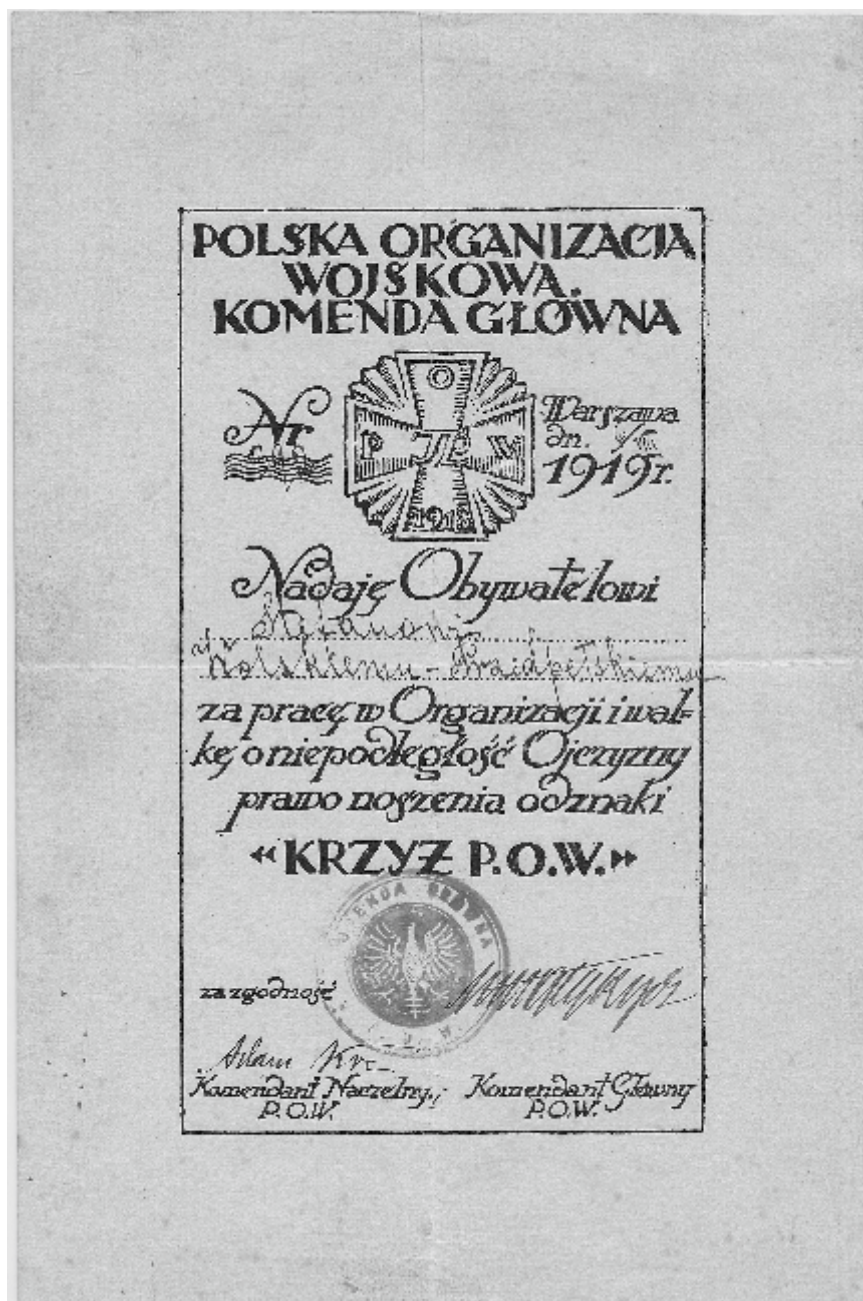 POLSKA ORGANIZACJA
WOJSKOWA.
KOMENDA GŁÓWNA
Nr
O
P JP W
1918
Warszawa
dn.
1919 r.
Nadaję Obywatelowi
Stefanowi
Wolskiemu-
za pracę w Organizacji i wal-
kę o niepodległość Ojczyzny
prawo noszenia odznaki
«KRZYŻ P.O.W.»
KOMENDA GŁÓWNA
za zgodność
Adam
Komendant Naczelny
P.O.W.
Komendant Główny
P.O.W.